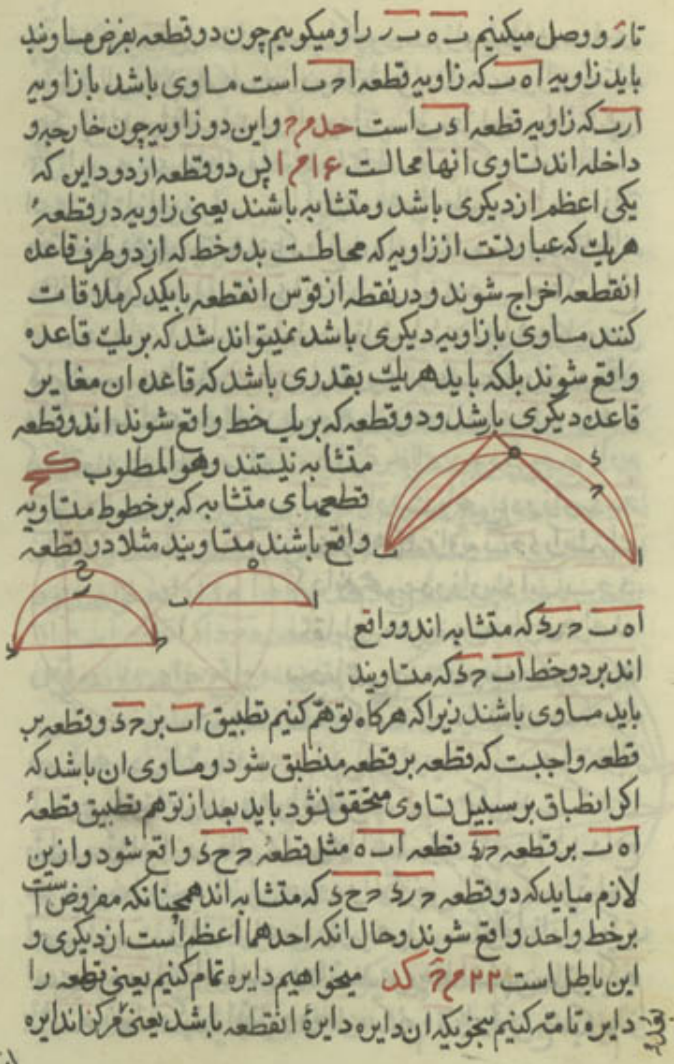 تا ز و وصل میکنیم ب ه ب ر را و میکوییم چون دو قطعه بفرض مساویند
باید زاویه ا ه ب که زاویه قطعه ا ح ب است مساوی باشد با زاویه
ا ر ب که زاویه قطعه ا ء ب است حد م و این دو زاویه چون خارجه و
داخله اند تساوی انها محالست ۱۶ م ا پس دو قطعه از دو دایره که
یکی اعظم از دیکری باشد و متشابه باشند یعنی زاویه در قطعهٔ
هریک که عبارتست از زاویه که محاطست بدو خط که از دو طرف قاعده
انقطعه اخراج شوند و در نقطه از قوس انقطعه بایکدیکر ملاقات
کنند مساوی بازاویه دیکری باشد نمیتواند شد که بر یک قاعده
واقع شوند بلکه باید هریک بقدری باشد که قاعده ان مغایر
قاعده دیکری باشد و دو قطعه که بر یک خط واقع شوند اندو قطعه
متشابه نیستند و هو المطلوب کج
قطعهای متشابه که بر خطوط متساویه
واقع باشند متساویند مثلا در قطعه
ا ه ب ح ر ء که متشابه اند و واقع
اند بر دو خط ا ب ح ء که متساویند
باید مساوی باشند زیرا که هرکاه توهم کنیم تطبیق ا ب بر ح ء و قطعه بر
قطعه واجبست که قطعه بر قطعه منطبق شود و مساوی ان باشد که
اکر انطباق بر سبیل تساوی متحقق نشود باید بعد از توهم تطبیق قطعهٔ
ا ه ب بر قطعه ح ر ء قطعه ا ب ه مثل قطعهٔ ح ح ء واقع شود و ازین
لازم میاید که دو قطعه ح ر ء ح ح ء که متشابه اند همچنانکه مفروض است
بر خط واحد واقع شوند و حال انکه احدهما اعظم است از دیکری و
این باطل است ۲۲ م کد میخواهیم دایره تمام کنیم یعنی قطعه را
دایره تامه کنیم بنحویکه ان دایره دایرهٔ انقطعه باشد یعنی مرکز اندایره